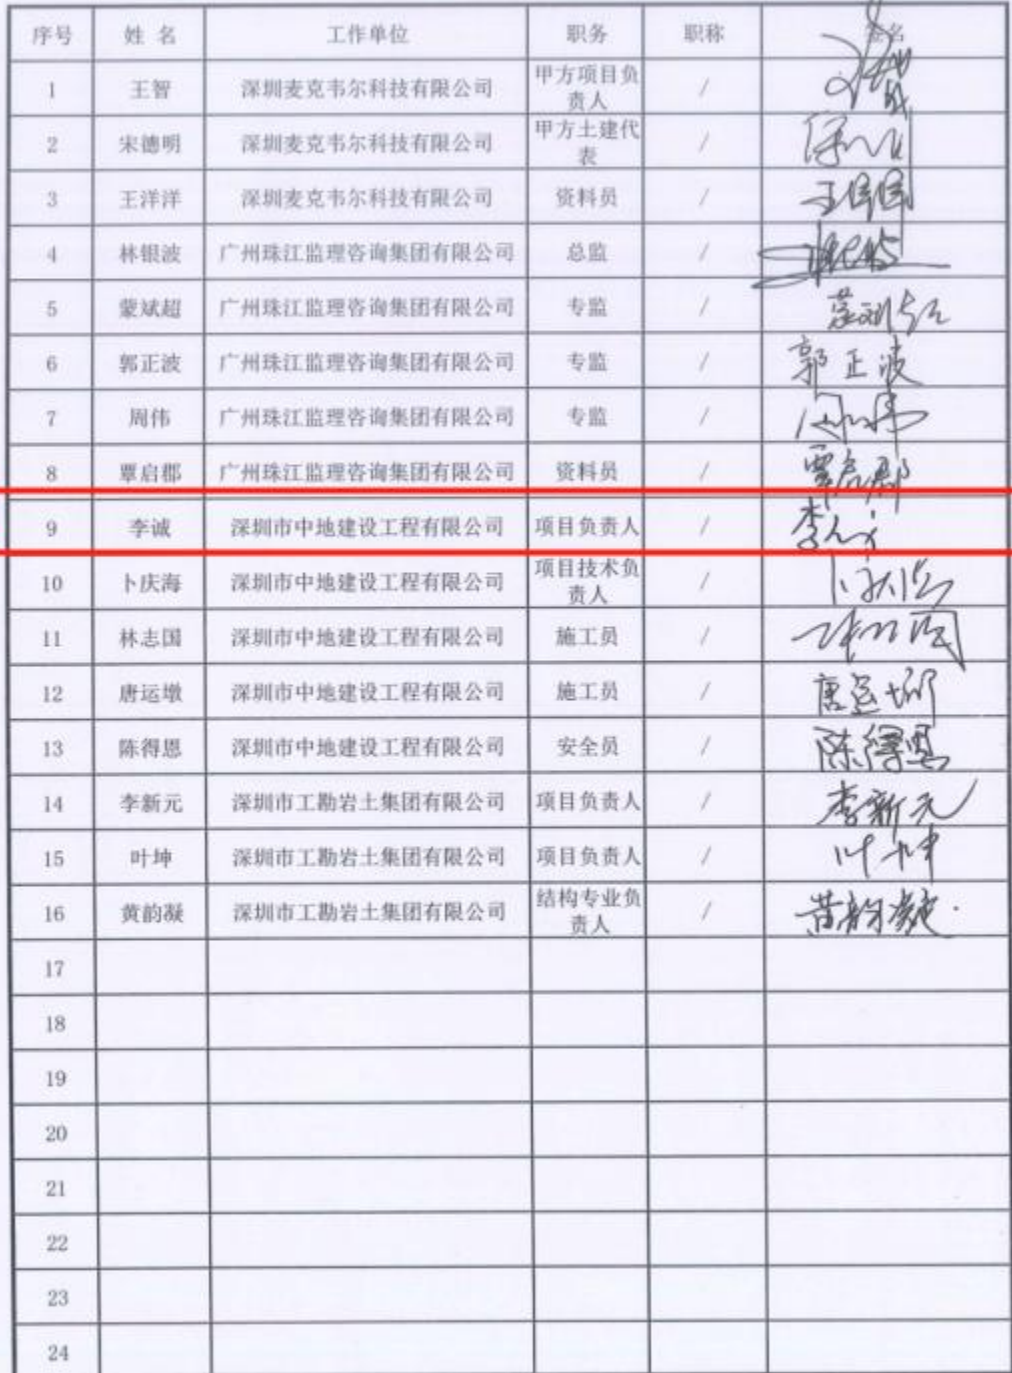 序号 姓 名 工作单位 职务 职称 签名
1 王智 深圳麦克韦尔科技有限公司 甲方项目负责人 /
2 宋德明 深圳麦克韦尔科技有限公司 甲方土建代表 /
3 王洋洋 深圳麦克韦尔科技有限公司 资料员 / 王洋洋
4 林银波 广州珠江监理咨询集团有限公司 总监 / 林银波
5 蒙斌超 广州珠江监理咨询集团有限公司 专监 / 蒙斌超
6 郭正波 广州珠江监理咨询集团有限公司 专监 / 郭正波
7 周伟 广州珠江监理咨询集团有限公司 专监 / 周伟
8 覃启郡 广州珠江监理咨询集团有限公司 资料员 / 覃启郡
9 李诚 深圳市中地建设工程有限公司 项目负责人 / 李诚
10 卜庆海 深圳市中地建设工程有限公司 项目技术负责人 / 卜庆海
11 林志国 深圳市中地建设工程有限公司 施工员 / 林志国
12 唐运墩 深圳市中地建设工程有限公司 施工员 / 唐运墩
13 陈得恩 深圳市中地建设工程有限公司 安全员 / 陈得恩
14 李新元 深圳市工勘岩土集团有限公司 项目负责人 / 李新元
15 叶坤 深圳市工勘岩土集团有限公司 项目负责人 / 叶坤
16 黄韵凝 深圳市工勘岩土集团有限公司 结构专业负责人 / 黄韵凝
17
18
19
20
21
22
23
24